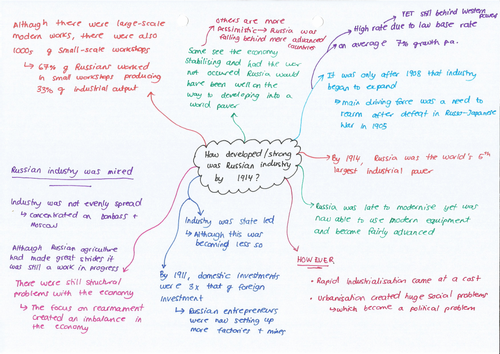 Although there were large-scale
modern works, there were also
1000s of small-scale workshops
↳ 67% of Russians worked
in small workshops producing
33% of industrial output
others are more
Pessimistic → Russia was
falling behind more advanced
countries
Some see the economy
stabilising and had the war
not occurred Russia would
have been well on the
way to developing into a
world power
YET still behind Western
powers
High rate due to low base rate
on average 7% growth p.a.
It was only after 1908 that industry
began to expand
↳ main driving force was a need to
rearm after defeat in Russo-Japanese
War in 1905
How developed/strong
was Russian industry
by 1914?
By 1914, Russia was the world's 5th
largest industrial power
Russia was late to modernise yet was
now able to use modern equipment
and become fairly advanced
HOWEVER
• Rapid Industrialisation came at a cost
• Urbanisation created huge social problems
↳ which became a political problem
Industry was state led
↳ Although this was
becoming less so
By 1911, domestic investments
were 3x that of foreign
investment
↳ Russian entrepreneurs
were now setting up
more factories + mines
Russian industry was mixed
Industry was not evenly spread
↳ concentrated on Donbass +
Moscow
Although Russian agriculture
had made great strides it
was still a work in progress
There were still structural
problems with the economy
↳ The focus on rearmament
created an imbalance in
the economy